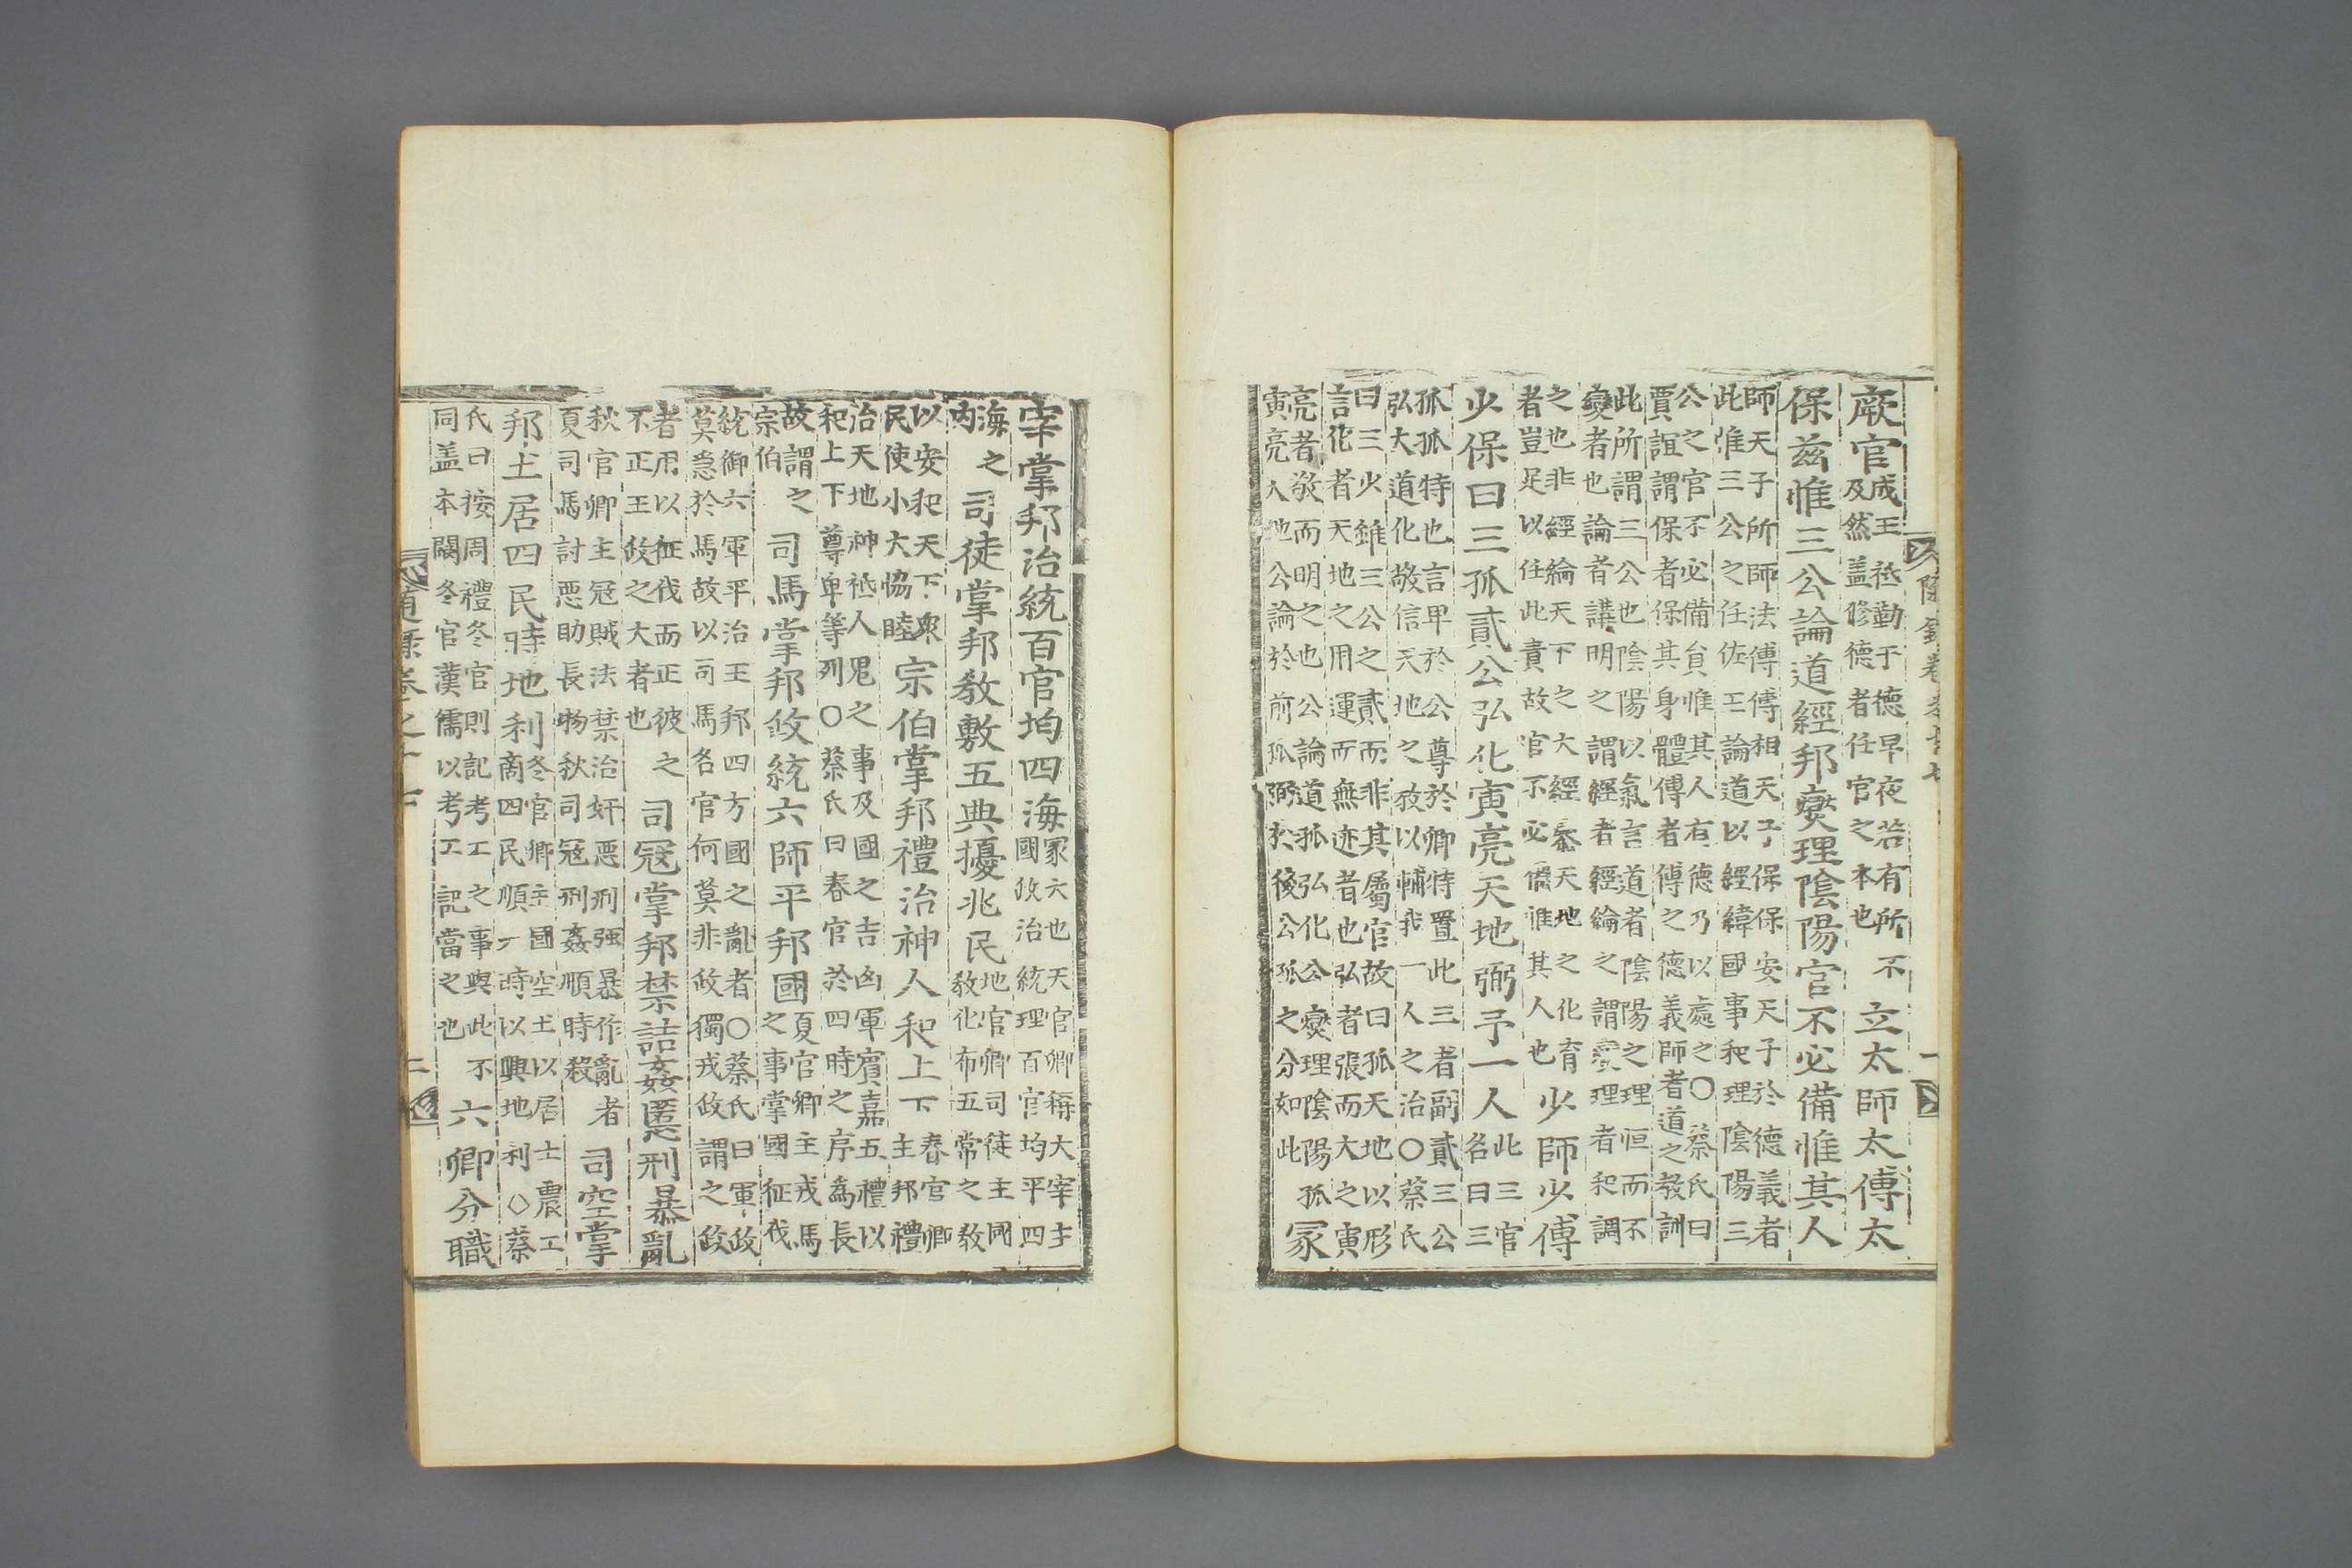 厥官成王祗勤于德早夜若有所不
及然盖修德者任官之本也立太師太傅太
保兹惟三公論道經邦燮理陰陽官不必備惟其人
師天子所師法傅傅相天子保保安天子於德義者
此惟三公之任佐王論道以經緯國事和理陰陽三
公之官不必備貟惟其人有德乃以處之○蔡氏曰
賈誼謂保者保其身體傅者傅之德義師者道之敎訓
此所謂三公也陰陽以氣言道者陰陽之理恒而不
變者也論者講明之謂經者經綸之謂燮理者和調
之也非經綸天下之大經叅天地之化育
者豈足以任此責故官不必備惟其人也少師少傅
少保曰三孤貳公弘化寅亮天地弼予一人此三官
名曰三
孤孤特也言卑於公尊於卿特置此三者副貳三公
弘大道化敬信天地之敎以輔我一人之治○蔡氏
曰三少雖三公之貳而非其屬官故曰孤天地以形
言化者天地之用運而無迹者也弘者張而大之寅
亮者敬而明之也公論道孤弘化公燮理陰陽孤
寅亮天地公論於前孤弼於後公孤之分如此冢
宰掌邦治統百官均四海冢大也天官卿稱大宰主
國政治統理百官均平四
海之
內司徒掌邦敎敷五典擾兆民地官卿司徒主國
敎化布五常之敎
以安和天下衆
民使小大恊睦宗伯掌邦禮治神人和上下春官卿
主邦禮
治天地神祗人鬼之事及國之吉凶軍賓嘉五禮以
和上下尊卑等列○蔡氏曰春官於四時之序為長
故謂之
宗伯司馬掌邦政統六師平邦國夏官卿主戎馬
之事掌國征伐
統御六軍平治王邦四方國之亂者○蔡氏曰軍政
莫急於馬故以司馬名官何莫非政獨戎政謂之政
者用以征伐而正彼之
不正王政之大者也司冦掌邦禁詰姦慝刑暴亂
秋官卿主冦賊法禁治奸惡刑强暴作亂者
夏司馬討惡助長物秋司冦刑姦順時殺司空掌
邦土居四民時地利冬官卿主國空土以居士農工
商四民順天時以興地利○蔡
氏曰按周禮冬官則記考工之事與此不
同盖本闕冬官漢儒以考工記當之也六卿分職